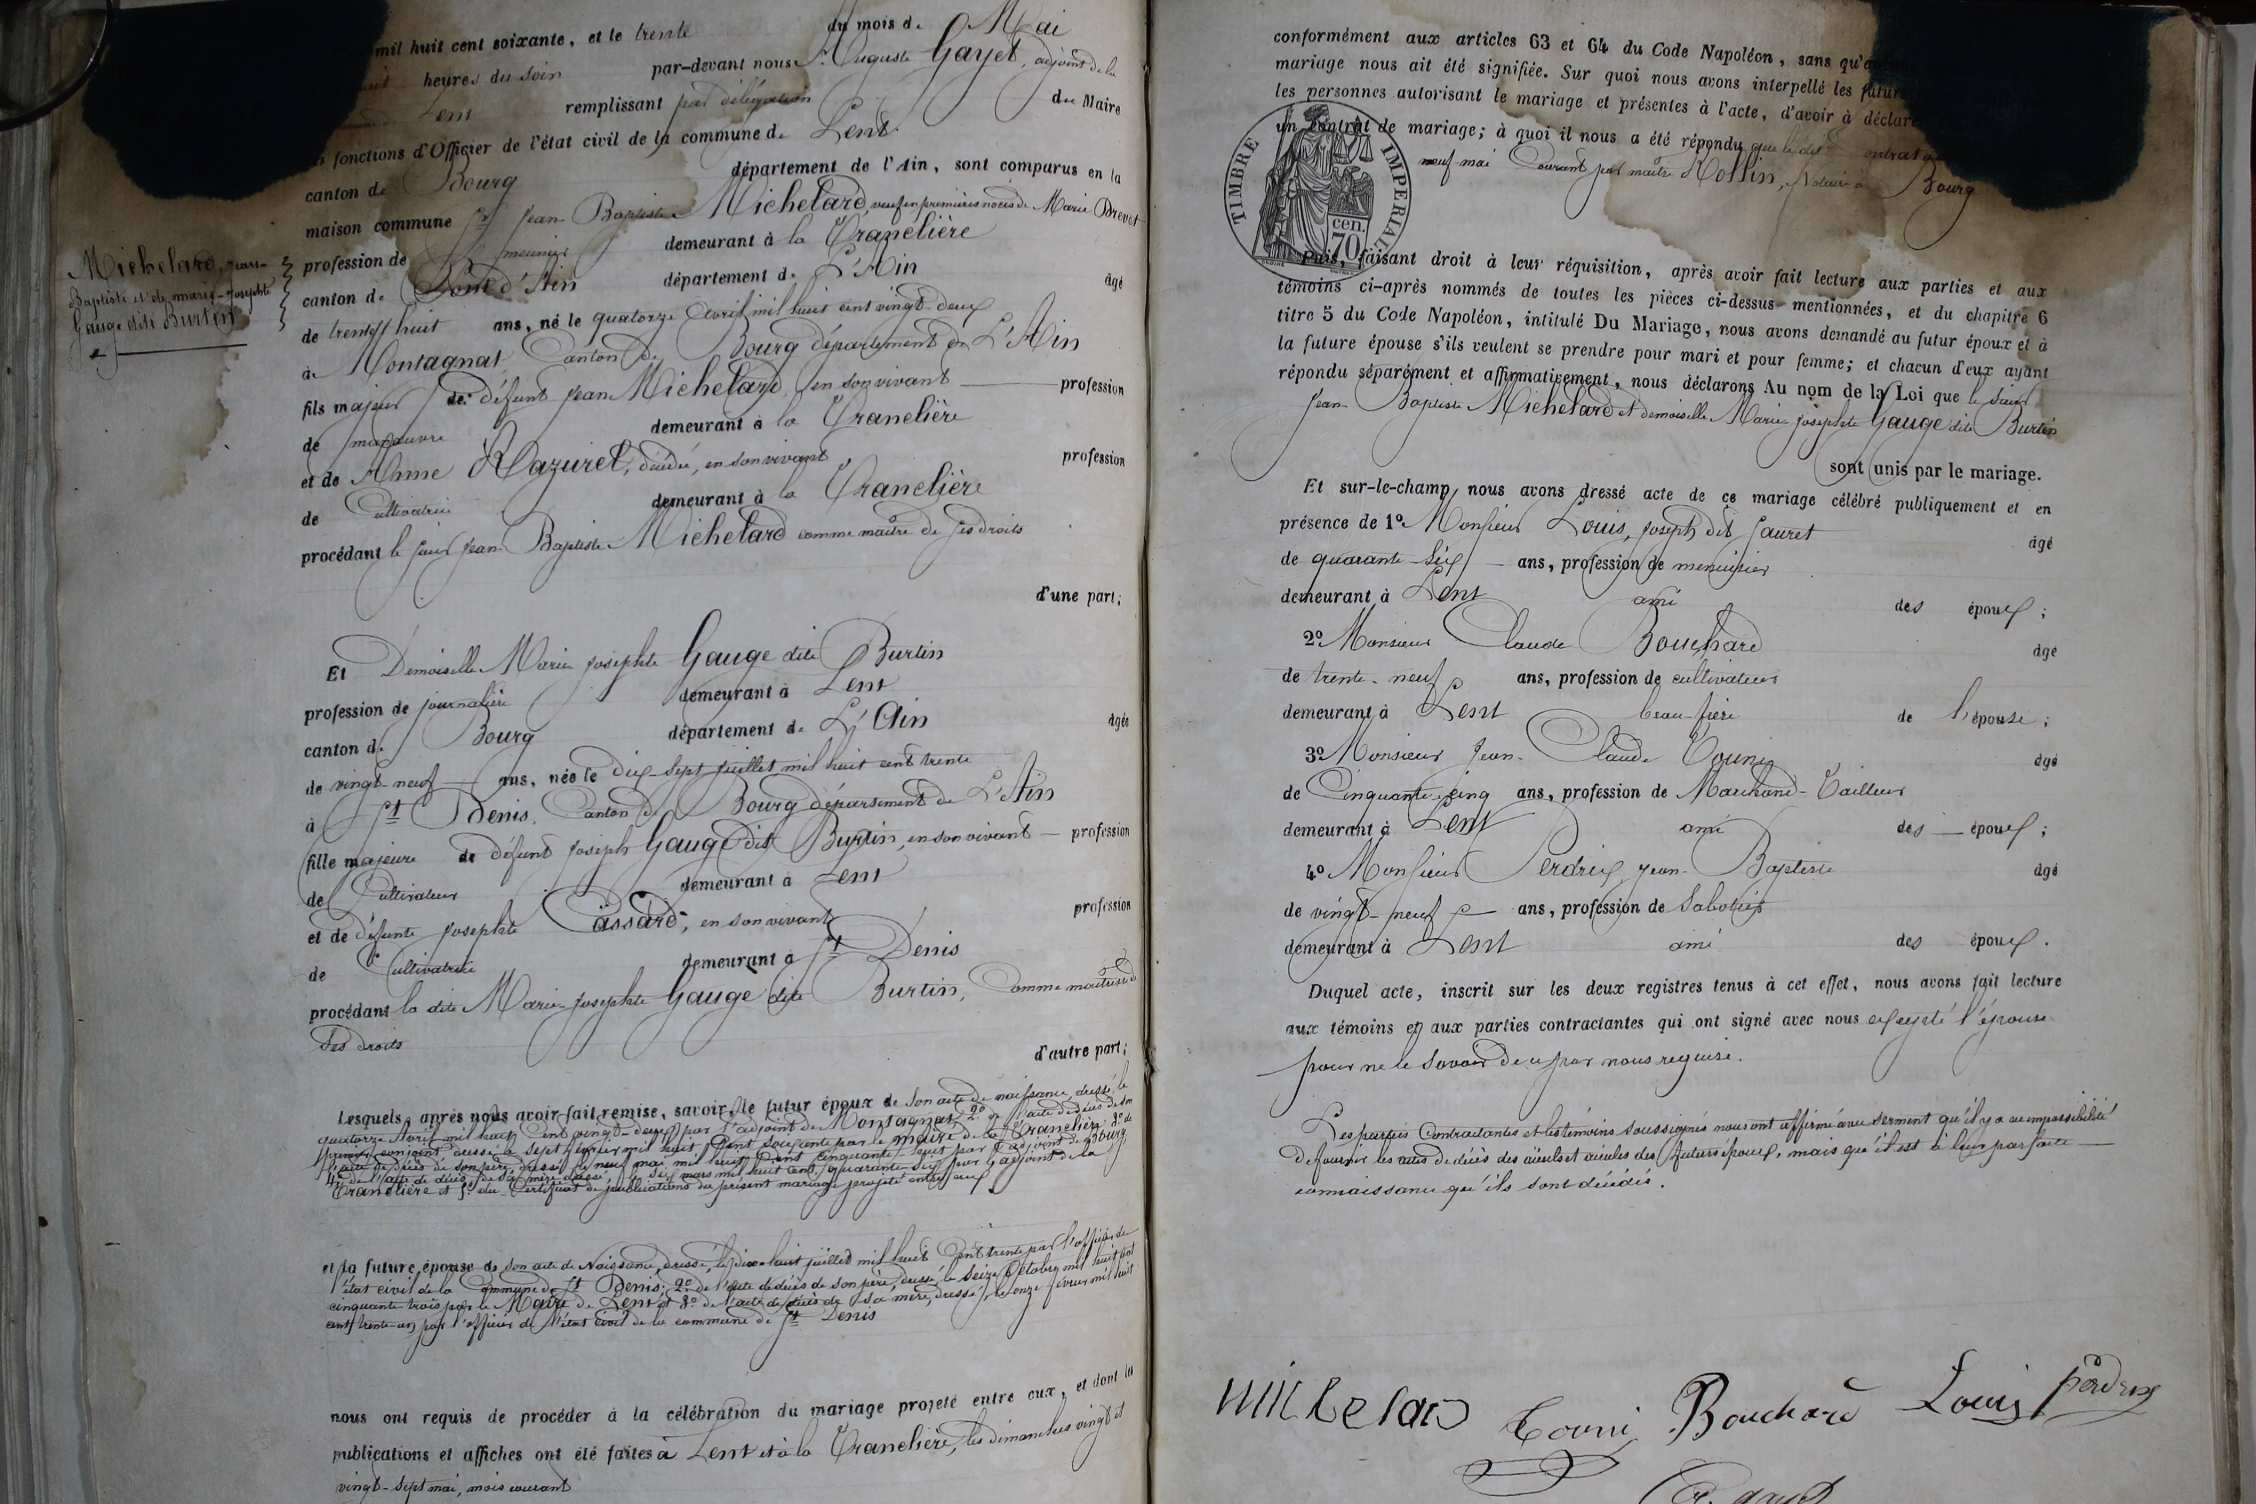 mil huit cent soixante, et le trente du mois de Mai
heures du soir par-devant nous Auguste Gayet, adjoint de la
Lent remplissant par délégation du Maire
fonctions d'Officier de l'état civil de la commune de Lent
canton de Bourg département de l'Ain, sont comparus en la
maison commune Sr Jean-Baptiste Michelard, veuf en premières noces de Marie Brevet
profession de meunier demeurant à la Tranclière
canton de Pont d'Ain département de L'Ain âgé
de trente huit ans, né le quatorze Avril mil huit cent vingt-deux
à Montagnat, Canton de Bourg département de L'Ain
fils majeur de défunt Jean Michelard, en son vivant profession
de manœuvre demeurant à la Tranclière
et de Anne Razurel, décédée, en son vivant profession
de Cultivatrice demeurant à la Tranclière
procédant le sieur Jean-Baptiste Michelard comme maître de ses droits
d'une part;
Michelard, Jean-
Baptiste et de marie-Josephte
Gauge dite Burtin
Et Demoiselle Marie Josephte Gauge dite Burtin
profession de journalière demeurant à Lent
canton de Bourg département de L'Ain âgée
de vingt-neuf ans, née le dix-sept juillet mil huit cent trente
à St Denis, Canton de Bourg département de L'Ain
fille majeure de défunt Joseph Gauge dit Burtin, en son vivant profession
de Cultivateur demeurant à Lent
et de défunte Josephte Cassard, en son vivant profession
de Cultivatrice demeurant à St Denis
procédant la dite Marie Josephte Gauge dite Burtin, Comme maîtresse de
ses droits
d'autre part;
Lesquels, après nous avoir fait remise, savoir, le futur époux de son acte de naissance, dressé le
quatorze Avril mil huit Cent vingt-deux par l'adjoint de Montagnat, 2º de l'acte de décès de son
conjoint dressé le sept février mil huit Cent soixante par le maire de la Tranclière; 3º de
l'acte de décès de son père, dressé le neuf mai mil huit Cent cinquante-huit par l'adjoint de Bourg
4º de l'acte de décès de sa mère dressé le six mars mil huit cent quarante-six par l'adjoint de la
Tranclière et 5º du Certificat de publications du présent mariage projeté entre eux
et la future épouse de son acte de Naissance, dressé, le dix-huit juillet mil huit Cent trente par l'officier de
l'état civil de la Commune de St Denis; 2º de l'acte de décès de son père, dressé le seize Octobre mil huit cent
cinquante trois par le Maire de Lent et 3º de l'acte de décès de sa mère, dressé le onze février mil huit
cent trente-un par l'officier de l'état civil de la commune de St Denis
nous ont requis de procéder à la célébration du mariage projeté entre eux, et dont les
publications et affiches ont été faites à Lent et à la Tranclière, les dimanches vingt et
vingt-sept mai, mois courant
conformément aux articles 63 et 64 du Code Napoléon, sans qu'
mariage nous ait été signifiée. Sur quoi nous avons interpellé les futurs
les personnes autorisant le mariage et présentes à l'acte, d'avoir à déclarer
un contrat de mariage; à quoi il nous a été répondu que le dit contrat
neuf mai Courant par maître Rollin, Notaire à Bourg
TIMBRE IMPERIAL
cen.
70
Puis, faisant droit à leur réquisition, après avoir fait lecture aux parties et aux
témoins ci-après nommés de toutes les pièces ci-dessus mentionnées, et du chapitre 6
titre 5 du Code Napoléon, intitulé Du Mariage, nous avons demandé au futur époux et à
la future épouse s'ils veulent se prendre pour mari et pour femme; et chacun d'eux ayant
répondu séparément et affirmativement, nous déclarons Au nom de la Loi que le Sieur
Jean-Baptiste Michelard et demoiselle Marie Josephte Gauge dite Burtin
sont unis par le mariage.
Et sur-le-champ nous avons dressé acte de ce mariage célébré publiquement et en
présence de 1º Monsieur Louis, Joseph dit Jauret âgé
de quarante-six ans, profession de menuisier
demeurant à Lent ami des époux;
2º Monsieur Claude Bouchard âgé
de trente-neuf ans, profession de cultivateur
demeurant à Lent beau-frère de l'épouse;
3º Monsieur Jean-Claude Tourni âgé
de Cinquante-cinq ans, profession de Marchand-Tailleur
demeurant à Lent ami des époux;
4º Monsieur Perdrix, Jean-Baptiste âgé
de vingt-neuf ans, profession de Sabotier
demeurant à Lent ami des époux.
Duquel acte, inscrit sur les deux registres tenus à cet effet, nous avons fait lecture
aux témoins et aux parties contractantes qui ont signé avec nous excepté l'épouse
pour ne le savoir de ce par nous requise.
Les parties Contractantes et les témoins soussignés nous ont affirmé avec serment qu'il y a eu impossibilité
de fournir les actes de décès des aïeuls et aïeules des futurs époux, mais qu'il est à leur parfaite
connaissance qu'ils sont décédés.
Michelard Tourni Bouchard Louis perdrix
A. Gayet